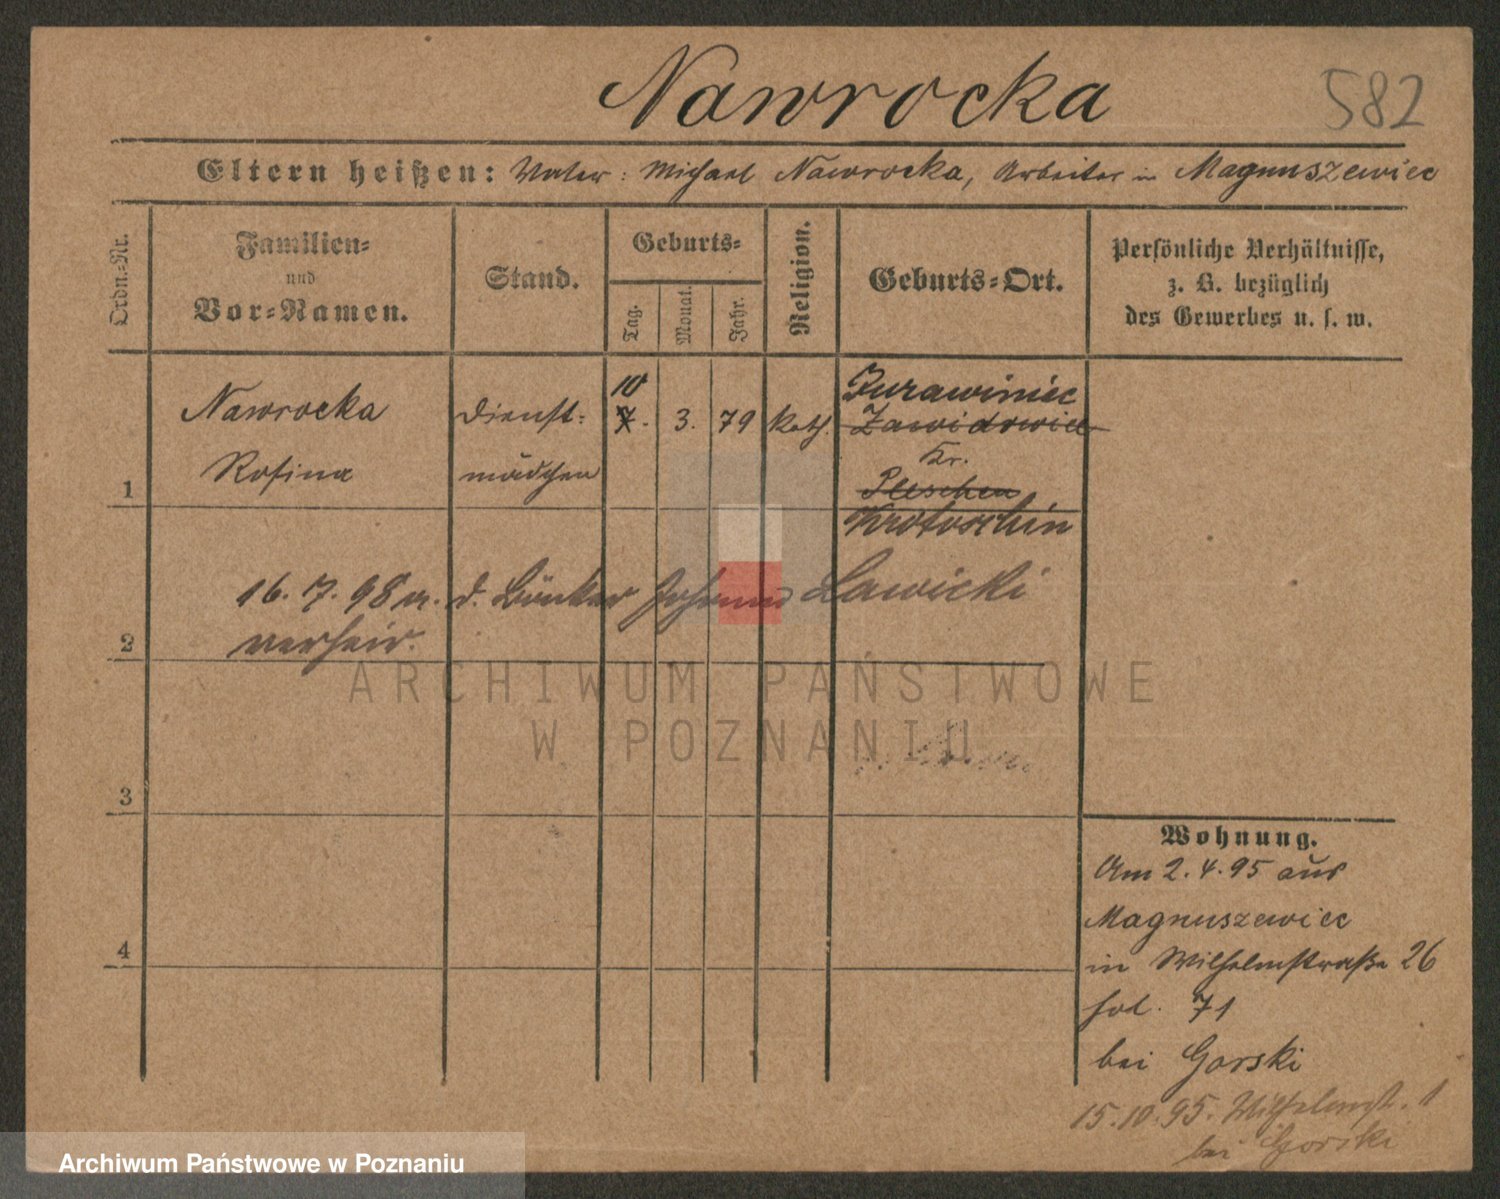 Nawrocka
582
Eltern heißen: Vater: Michael Nawrocka, Arbeiter in Magnuszewice
Ordn.-Nr.
Familien-
und
Vor-Namen.
Stand.
Geburts-
Tag.
Monat.
Jahr.
Religion.
Geburts-Ort.
Persönliche Verhältnisse,
z. B. bezüglich
des Gewerbes u. s. w.
1
Nawrocka
Rosina
Dienst-
mädchen
10
7.
3.
79
Kath.
Zawidowice
Kr.
Pleschen
Krotoschin
2
16. 7. 98 m. d. Johann Lawicki
verheir.
3
4
Wohnung.
Am 2. 4. 95 aus
Magnuszewice
in Wilhelmstraße 26
fol. 71
bei Gorski
15. 10. 95. Wilhelmst. 1
bei Gorski
ARCHIWUM PAŃSTWOWE
W POZNANIU
Archiwum Państwowe w Poznaniu